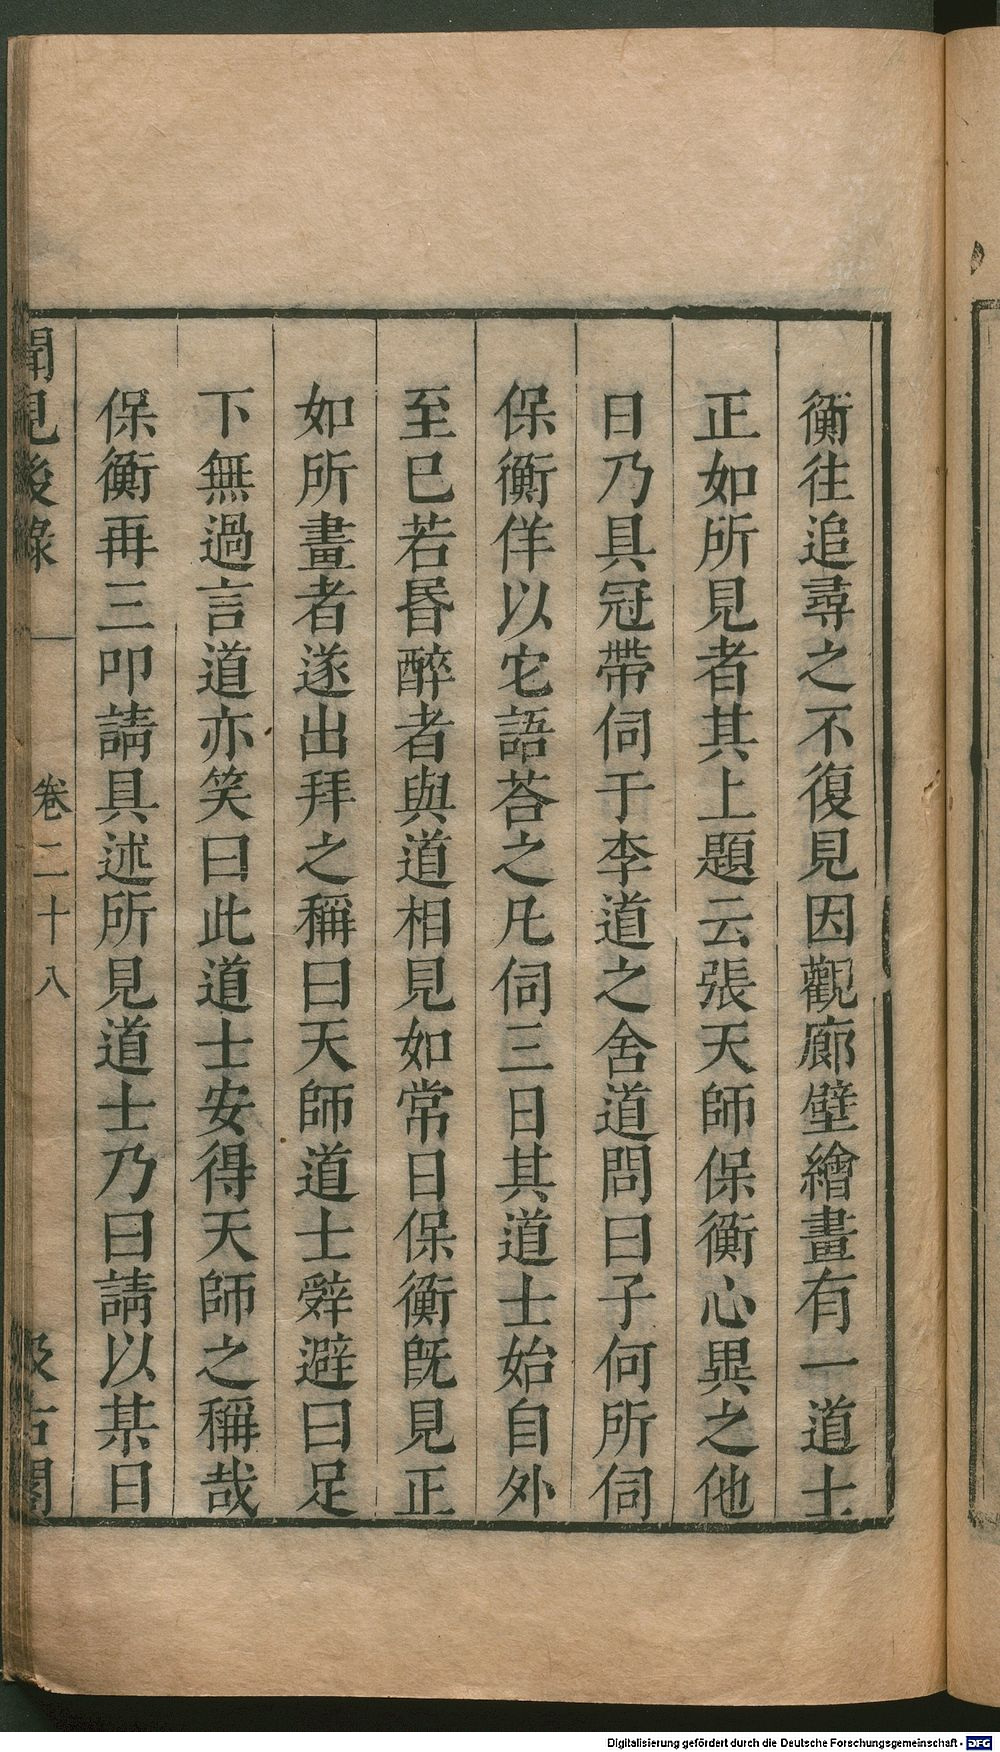 衡往追尋之不復見因觀廊壁繪畫有一道士
正如所見者其上題云張天師保衡心異之他
日乃具冠帶伺于李道之舍道問曰子何所伺
保衡佯以它語荅之凡伺三日其道士始自外
至巳若昏醉者與道相見如常日保衡旣見正
如所畫者遂出拜之稱曰天師道士辤避曰足
下無過言道亦笑曰此道士安得天師之稱哉
保衡再三叩請具述所見道士乃曰請以某日
聞見後錄
卷二十八
汲古閣
Digitalisierung gefördert durch die Deutsche Forschungsgemeinschaft - DFG